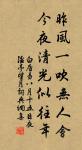 昨風一吹無人會
今夜清光似往年
白居易八月十五日夜
湓亭望月